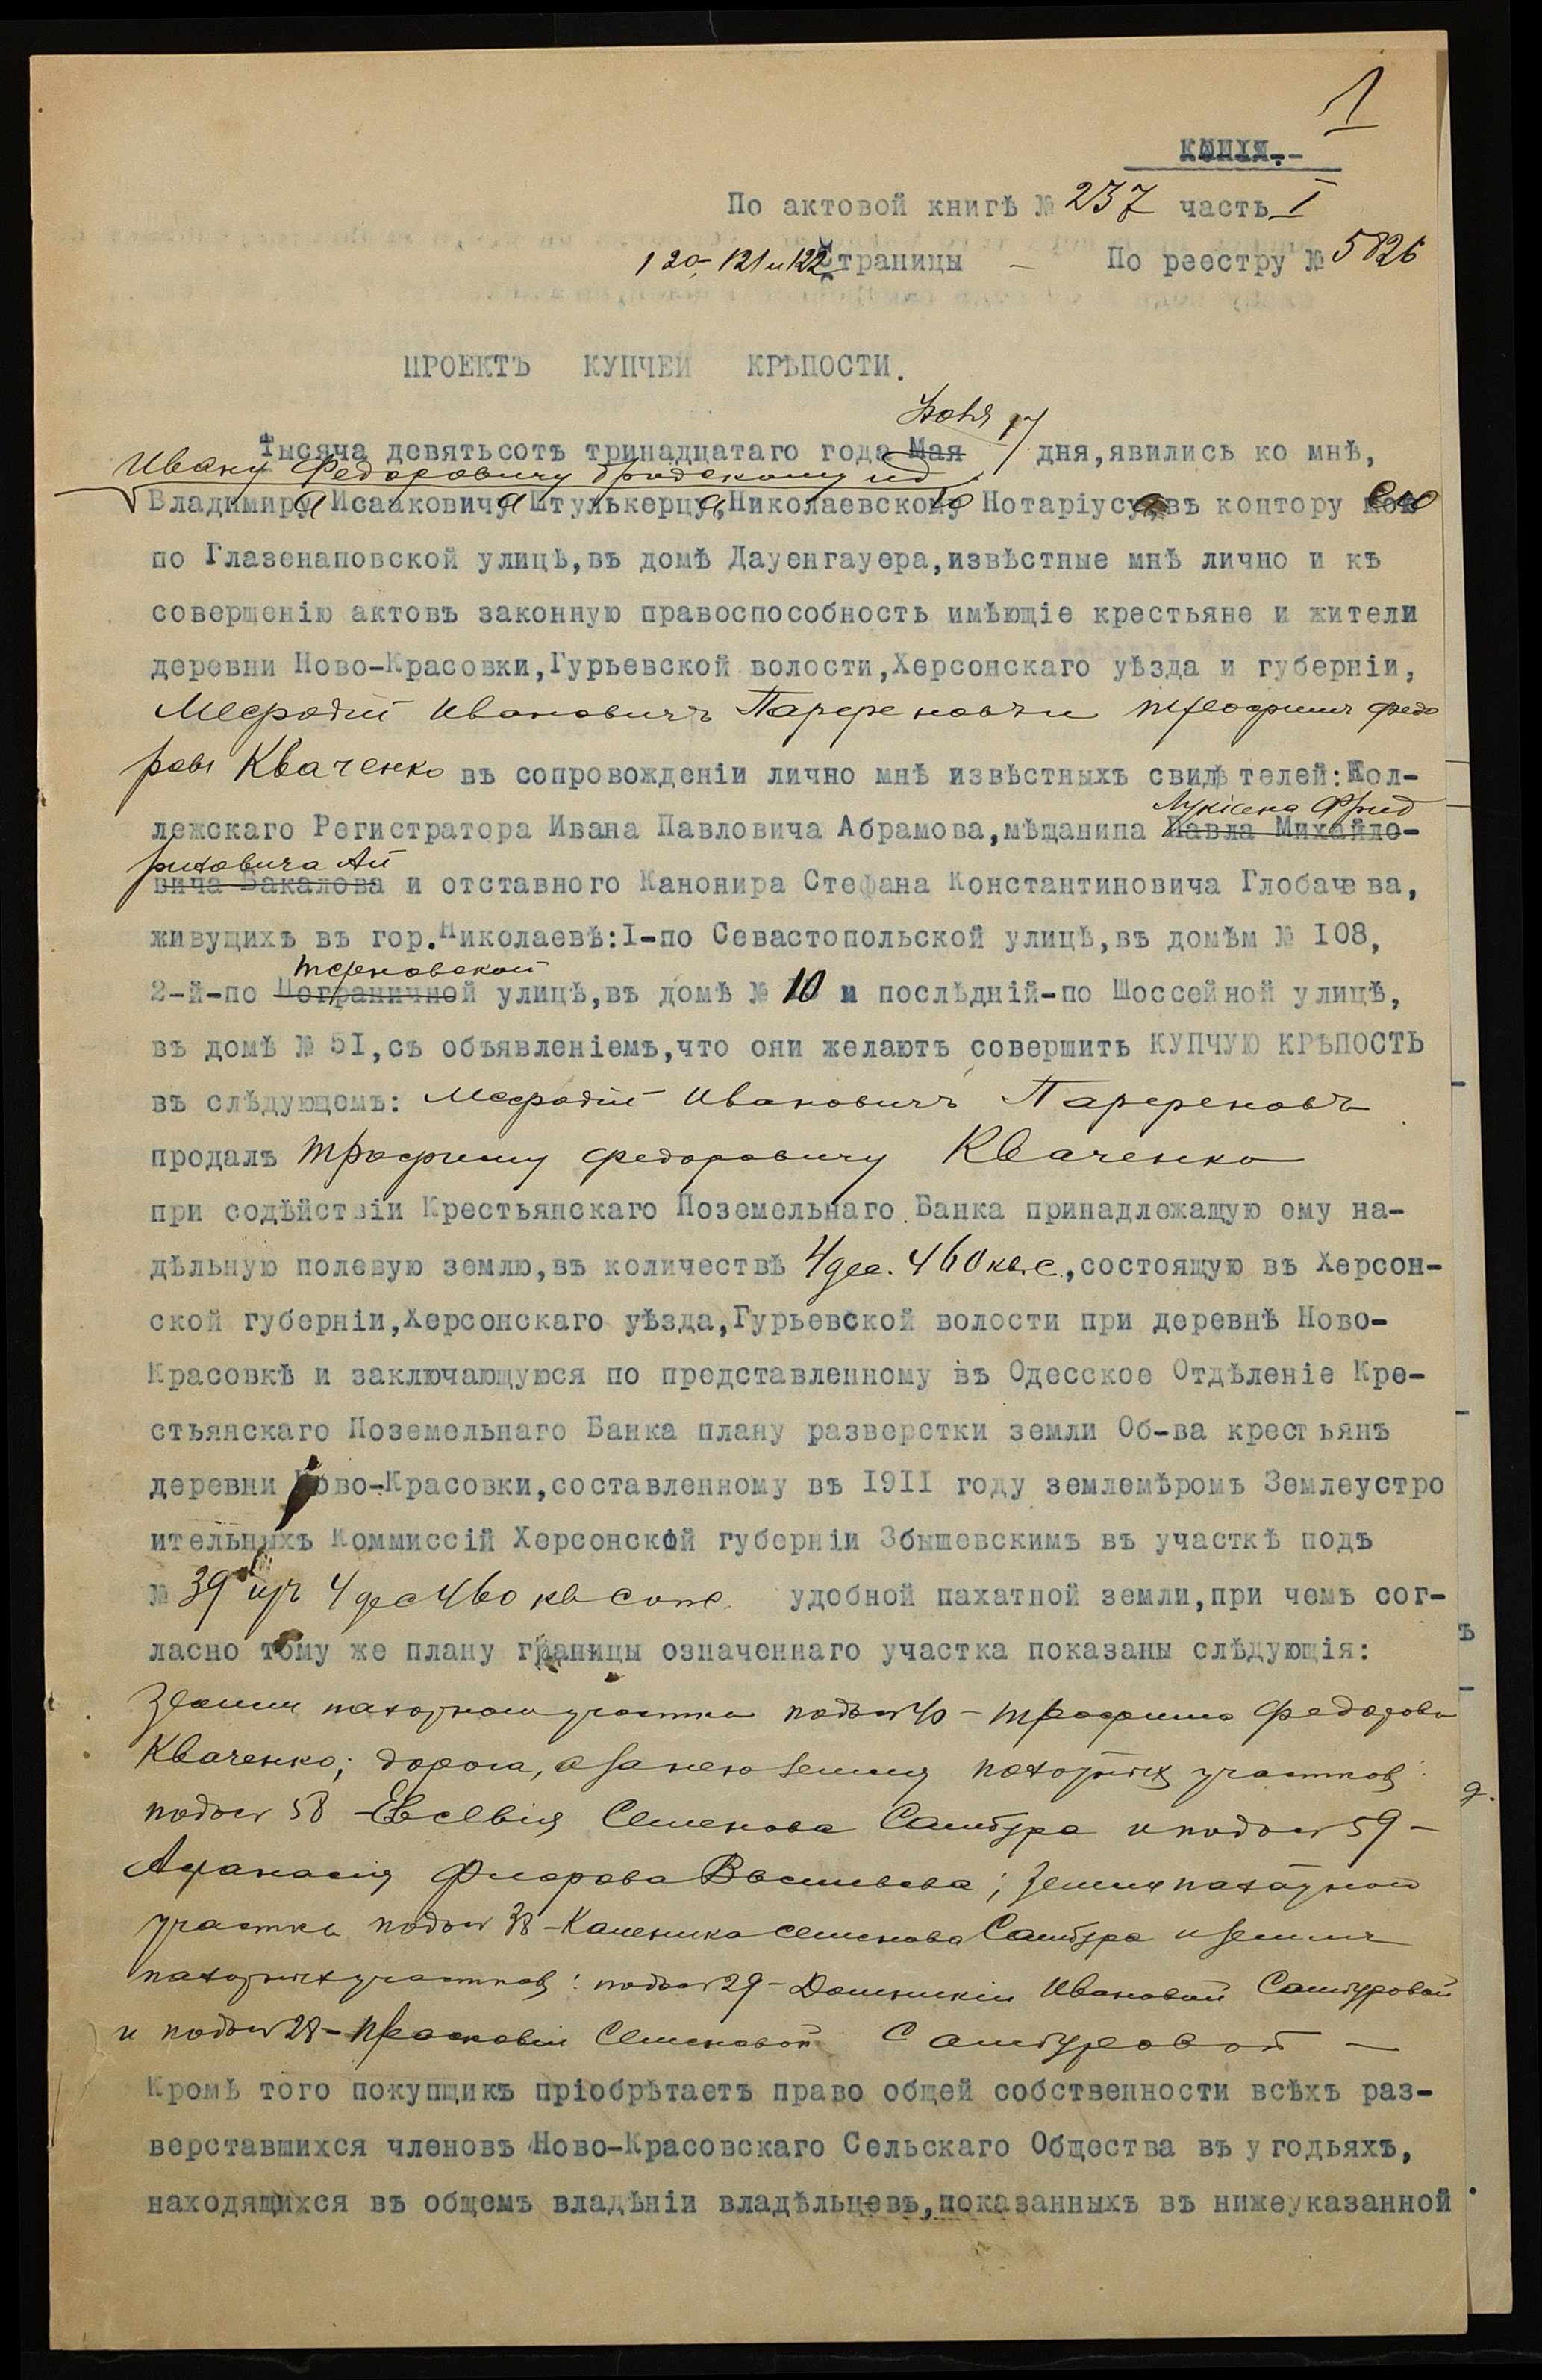 1
КОПІЯ.-
По актовой книгѣ № 237 часть I
120, 121 и 122 Страницы — По реестру № 5826
ПРОЕКТЪ КУПЧЕЙ КРѢПОСТИ.
Іюня 17
Тысяча девятьсотъ тринадцатаго года Мая дня, явились ко мнѣ,
Ивану Федоровичу Бродскому ид
Владимира Исааковича Штулькерца, Николаевскаго Нотаріуса въ контору его
по Глазенаповской улицѣ, въ домѣ Дауенгауера, извѣстные мнѣ лично и къ
совершенію актовъ законную правоспособность имѣющіе крестьяне и жители
деревни Ново-Красовки, Гурьевской волости, Херсонскаго уѣзда и губерніи,
Мефодій Ивановичъ Парфеновъ и Трофимъ Федо
ровъ Кваченко въ сопровожденіи лично мнѣ извѣстныхъ свидѣтелей: Кол-
лежскаго Регистратора Ивана Павловича Абрамова, мѣщанина Павла Михайло-
риховича
вича Бакалова и отставного Канонира Стефана Константиновича Глобачева,
живущихъ въ гор. Николаевѣ: I-по Севастопольской улицѣ, въ домѣм № 108,
Терновской
2-й-по Пограничной улицѣ, въ домѣ № 10 и послѣдній-по Шоссейной улицѣ,
въ домѣ № 51, съ объявленіемъ, что они желаютъ совершить КУПЧУЮ КРѢПОСТЬ
въ слѣдующемъ: Мефодій Ивановичъ Парфеновъ
продалъ Трофиму Федоровичу Кваченко
при содѣйствіи Крестьянскаго Поземельнаго Банка принадлежащую ему на-
дѣльную полевую землю, въ количествѣ 4 дес. 460 кв. с., состоящую въ Херсон-
ской губерніи, Херсонскаго уѣзда, Гурьевской волости при деревнѣ Ново-
Красовкѣ и заключающуюся по представленному въ Одесское Отдѣленіе Кре-
стьянскаго Поземельнаго Банка плану разверстки земли Об-ва крестьянъ
деревни Ново-Красовки, составленному въ 1911 году землемѣромъ Землеустро
ительныхъ Коммиссій Херсонской губерніи Збышевскимъ въ участкѣ подъ
№ 39 изъ 4 дес 460 кв саж. удобной пахатной земли, при чемъ сог-
ласно тому же плану границы означеннаго участка показаны слѣдующія:
Земли пахотного участка подъ № 40 - Трофима Федорова
Кваченко; дорога, а за нею земли пахотныхъ участковъ
подъ № 58 - Евсевія Семенова Самбура и подъ № 59 -
Афанасія Флорова Васильева; земли пахотного
участка подъ № 38 - Каленика Семенова Самбура и земли
пахотныхъ участковъ: подъ № 29 - Домникіи Ивановой Самбуровой
и подъ № 28 - Прасковіи Семеновой Самбуровой —
Кромѣ того покупщикъ пріобрѣтаетъ право общей собственности всѣхъ раз-
верставшихся членовъ Ново-Красовскаго Сельскаго Общества въ угодьяхъ,
находящихся въ общемъ владѣніи владѣльцевъ, показанныхъ въ нижеуказанной